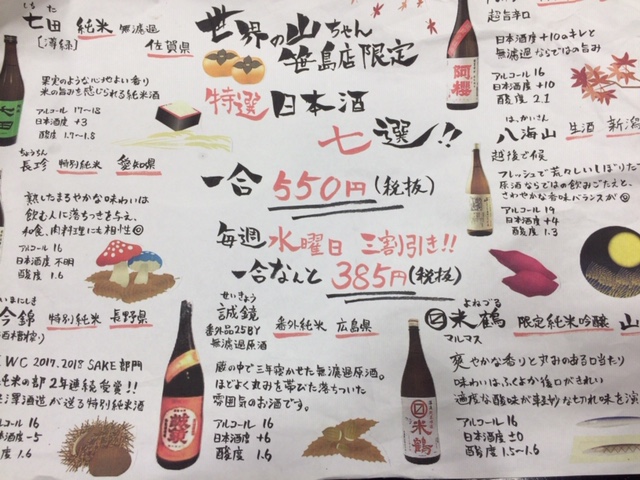 しちだ
七田 純米 無濾過
佐賀県
果実のような心地よい香り
米の旨みを感じられる純米酒
アルコール 17〜18
日本酒度 +3
酸度 1.7〜1.8
世界の山ちゃん
笹島店限定
特選 日本酒
七選!!
一合 550円(税抜)
毎週水曜日 三割引き!!
一合なんと 385円(税抜)
超旨辛口
日本酒度+10のキレと
無濾過ならではの旨み
アルコール 16
日本酒度 +10
酸度 2.1
阿櫻
はっかいさん
八海山 生酒 新潟
越後で候
フレッシュで荒々しいしぼりた
原酒ならではの飲みごたえと、
さわやかな香味バランスが◎
アルコール 19
日本酒度 +4
酸度 1.3
ちょうちん
長珍 特別純米 愛知県
熟したまろやかな味わいは
飲む人に落ちつきを与え、
和食、肉料理にも相性◎
アルコール 16
日本酒度 不明
酸度 1.6
いまにしき
今錦 特別純米 長野県
WC 2017.2018 SAKE部門
純米の部 2年連続受賞!!
澤酒造が送る特別純米酒
コール 16
本酒度 -5
度 1.6
せいきょう
誠鏡 番外純米 広島県
番外品25BY
無濾過原酒
蔵の中で三年寝かせた無濾過原酒。
ほどよく丸みを帯びた落ちついた
雰囲気のお酒です。
アルコール 16
日本酒度 +6
酸度 1.6
よねづる
米鶴 限定純米吟醸 山
マルマス
爽やかな香りと丸みのある口当たり
味わいはふくよか後口がきれい
適度な酸味が軽妙な切れ味を演
アルコール 16
日本酒度 ±0
酸度 1.5〜1.6
米鶴